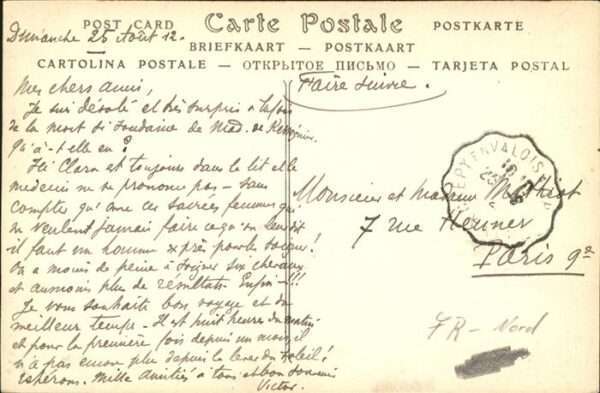 POST CARD Carte Postale POSTKARTE
Dimanche 25 Août 12.
BRIEFKAART — POSTKAART
CARTOLINA POSTALE — ОТКРЫТОЕ ПИСЬМО — TARJETA POSTAL
Mes chers amis,
Je suis désolé et très surpris à la fois
de la mort si soudaine de Mad. de
Qu'a-t-elle eu?
Clara est toujours dans le lit et le
médecin ne se prononce pas — sans
compter qu'avec ces sacrées femmes qui
ne veulent jamais faire ce qu'on leur dit
il faut un homme exprès pour la soigner!
On a moins de peine à soigner six chevaux
et au moins plus de résultats. Enfin —!!!
Je vous souhaite bon voyage et du
meilleur temps — Il est huit heures du matin
et pour la première fois depuis un mois, il
n'a pas encore plu depuis le lever du soleil!
espérons. Mille amitiés à tous et bon souvenir
Victor.
Faire suivre.
CREPY EN VALOIS
Monsieur et Madame
7 rue Henner
Paris 9e
FR - Nord